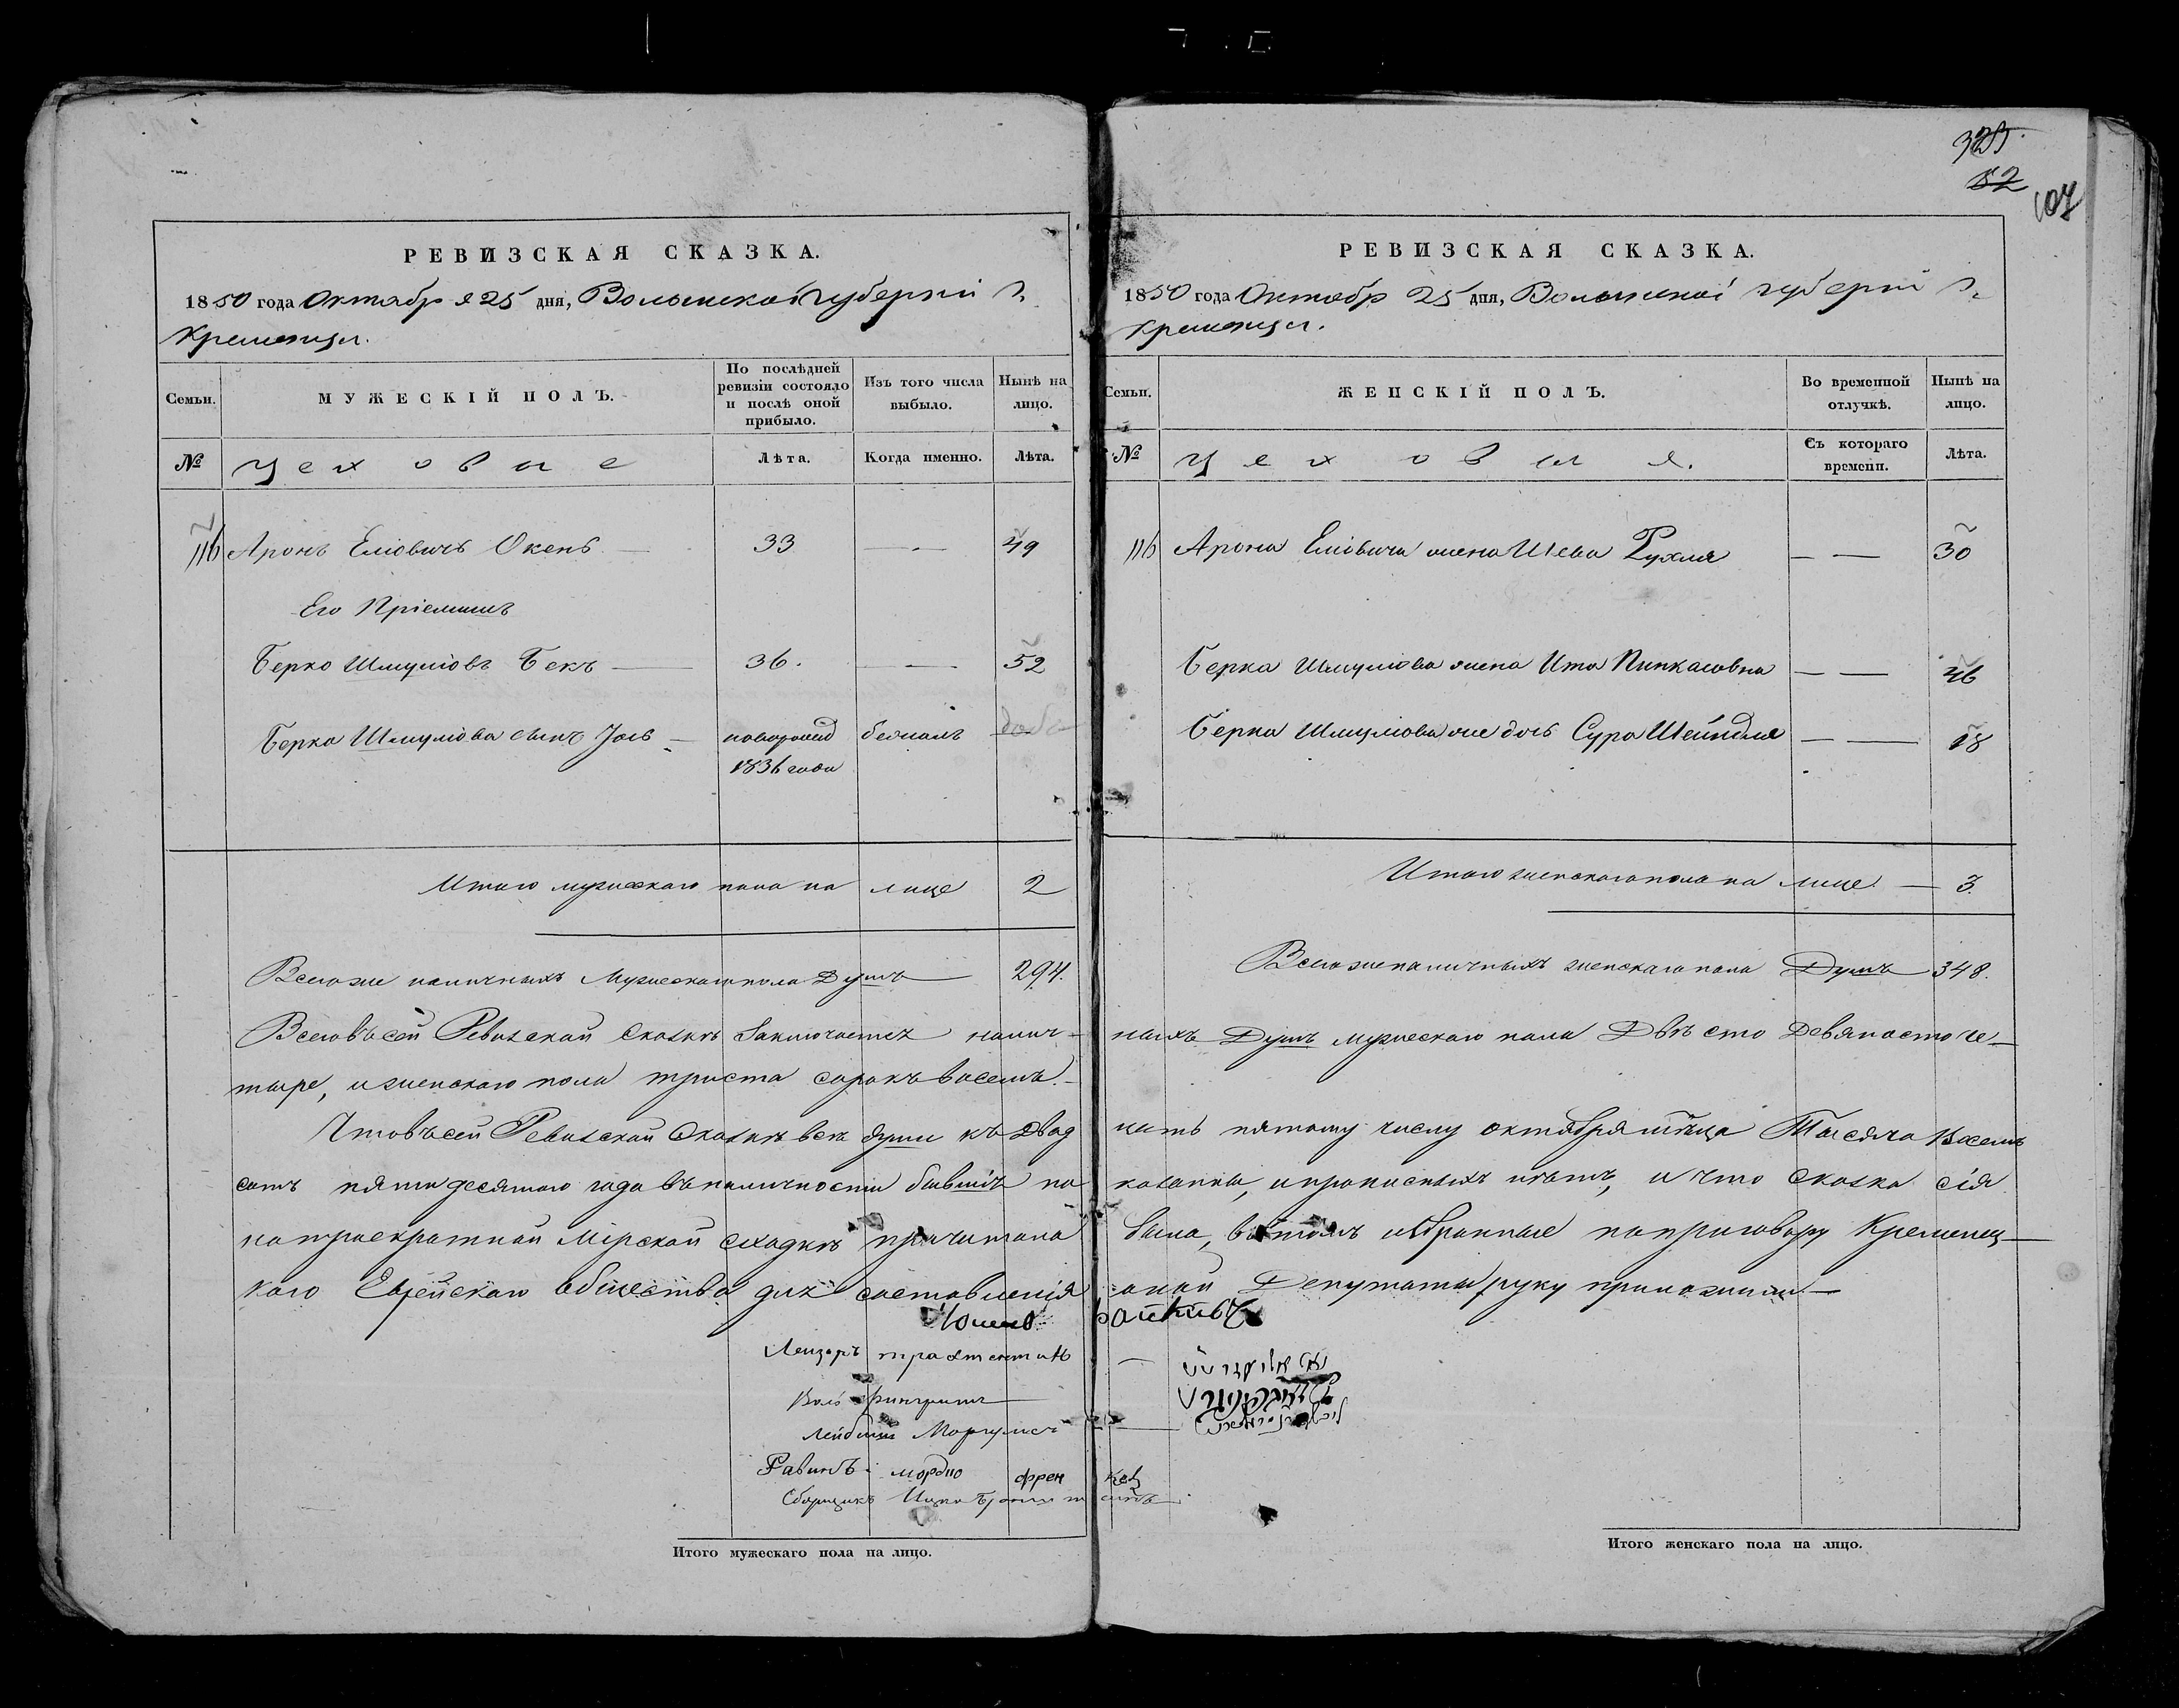 323.
52
107
РЕВИЗСКАЯ СКАЗКА.
1850 года Октября 25 дня, Волынской губерніи г.
Кременца.
Семьи. МУЖЕСКІЙ ПОЛЪ. По послѣдней ревизіи состояло и послѣ оной прибыло. Изъ того числа выбыло. Нынѣ на лицо.
№ Цеховые Лѣта. Когда именно. Лѣта.
116 Аронъ Еліовичъ Окень — 33 — 49
Его Пріемышъ
Берко Шмуліовъ Бекъ — 36. — 52
Берка Шмуліова сынъ Jось — новорожд бежалъ
1836 года
Итого мужескаго пола на лице 2
Всего же наличныхъ Мужескаго пола Душъ — 294.
РЕВИЗСКАЯ СКАЗКА.
1850 года Октябр 25 дня, Волынской губерніи г.
Кременца.
Семьи. ЖЕНСКІЙ ПОЛЪ. Во временной отлучкѣ. Нынѣ на лицо.
№ Цеховыя. Съ котораго времени. Лѣта.
116 Арона Еліовича жена Шева Рухля — — 30
Берка Шмуліова жена Ита Пинкасовна — — 46
Берка Шмуліова же дочь Сура Шейндля — — 18
Итого женскаго пола на лице — 3.
Всего же наличныхъ женскаго пола Душъ — 348.
Всего въ сей Ревизской Сказкѣ Заключается налич- ныхъ Душъ мужескаго пола Двѣсто Девяносто че-
тыре, и женскаго пола триста сорокъ восемь.—
Что въ сей Ревизской Сказкѣ всѣ души къ Двад цать пятому числу октября мѣсяца Тысяча Восемь
сотъ пятидесятаго года въ наличности бывшіе по казанны, и прописныхъ нѣтъ, и что сказка сія
на троекратной Мірской сходкѣ прочитана была, въ томъ избранные по приговору Кременец—
каго Еврейскаго общества для составленія оной Депутаты руку приложили—
Лейзоръ
Моргулисъ
Равинъ мордко френкел
Сборщикъ Ицко
Итого мужескаго пола на лицо.
Итого женскаго пола на лицо.